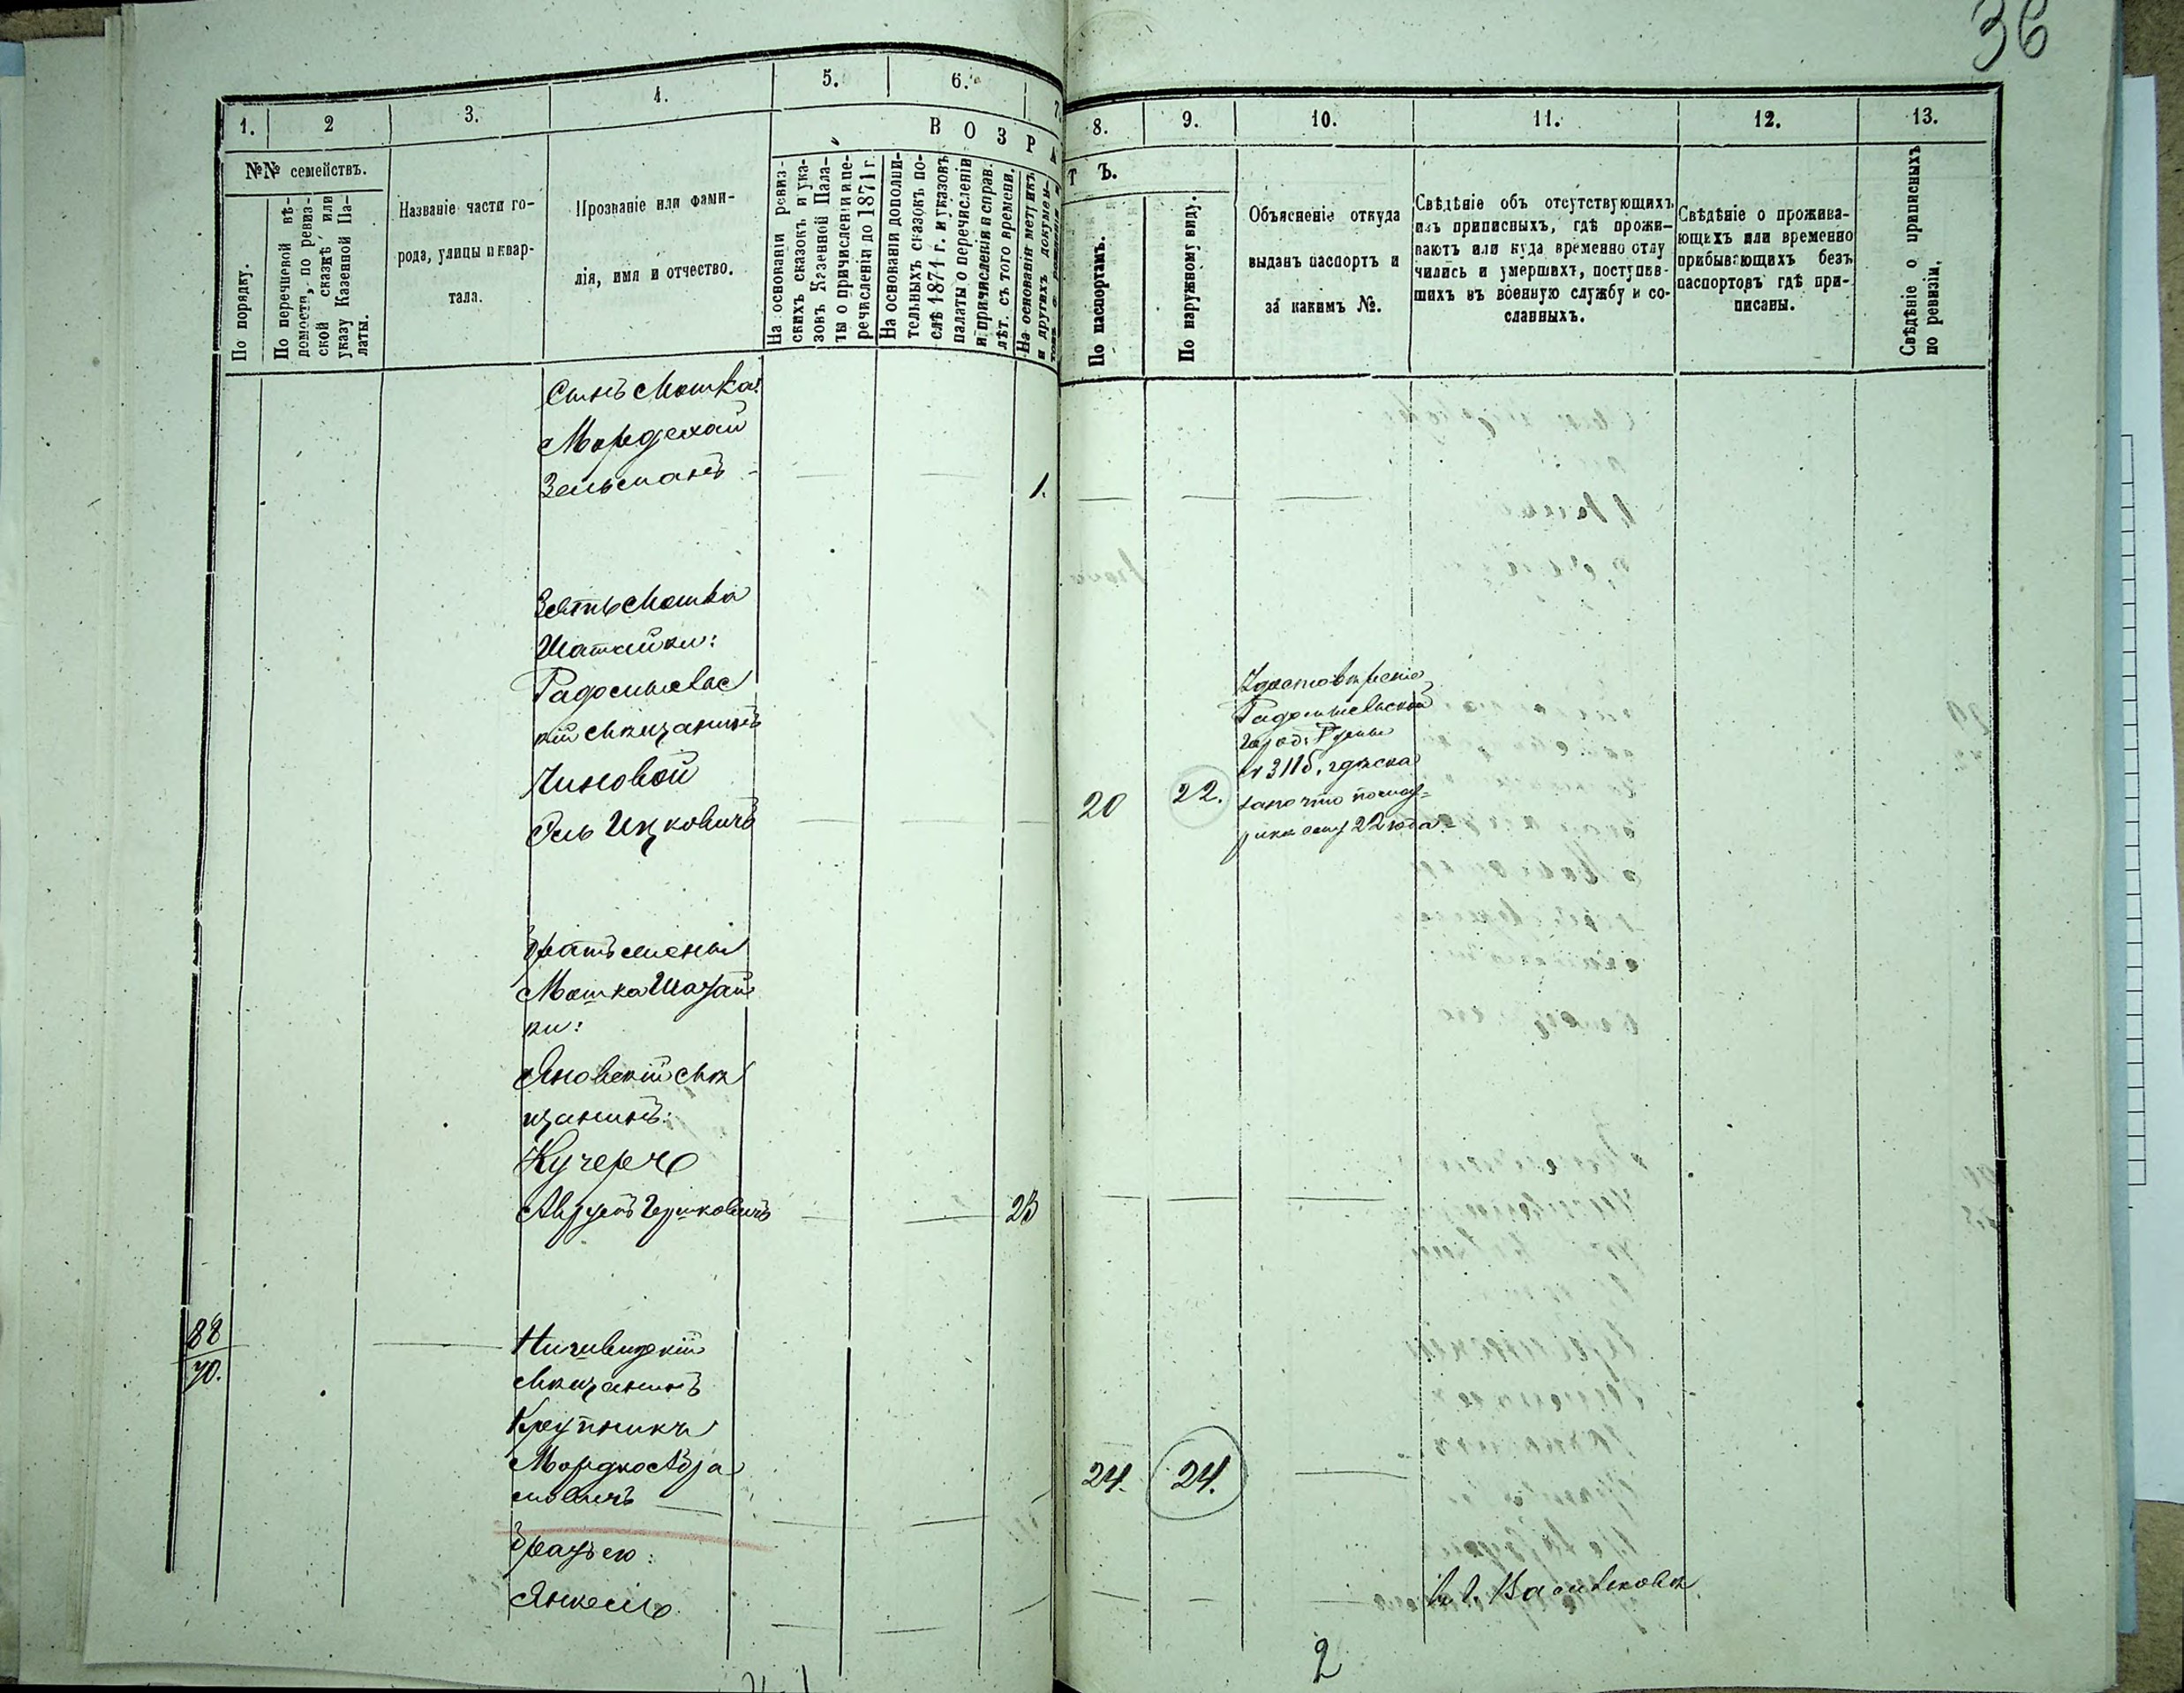 36
1. 2 3. 4. 5. 6. 7.
8. 9. 10. 11. 12. 13.
В О З Р А
Т Ъ.
№№ семействъ.
По порядку.
По перечневой вѣ-
домости, по ревиз-
ской сказкѣ или
указу Казенной Па-
латы.
Названіе части го-
рода, улицы и квар-
тала.
Прозваніе или фами-
лія, имя и отчество.
На основаніи ревиз-
скихъ сказокъ и ука-
зовъ Казенной Пала-
ты о причисленіи и пе-
речисленіи до 1871 г.
На основаніи дополни-
тельныхъ сказокъ по-
слѣ 1874 г. и указовъ
палаты о перечисленіи
и причисленіи и справ.
лѣт. съ того времени.
На основаніи метрикъ
и другихъ докумен-
По паспортамъ.
По наружному виду.
Объясненіе откуда
выданъ паспортъ и
за какимъ №.
Свѣдѣніе объ отсутствующихъ
изъ приписныхъ, гдѣ прожи-
ваютъ или куда временно отлу
чились и умершихъ, поступив-
шихъ въ военную службу и со-
сланныхъ.
Свѣдѣніе о прожива-
ющихъ или временно
прибывающихъ безъ
паспортовъ гдѣ при-
писаны.
Свѣдѣніе о приписныхъ
по ревизіи.
Сынъ Мошка:
Мордехай
Зельманъ 1.
Зять Мошка
Радомысльс
кій Мѣщанинъ
Линовой
Ицковичъ 20 22.
Удостовѣреніе
Радомысльской
Город. Управы
№ 3115, гдѣ ска
зано что
22 года
Братъ жены
Мошка
ки:
Яновскій Мѣ
щанинъ:
Кучеръ
Гершковичъ 23
88
70.
Мѣщанинъ
Крупникъ
Мордко Абра
мовичъ 24. 24.
Братъ его:
Янкель
Въ г. Васильковѣ
2